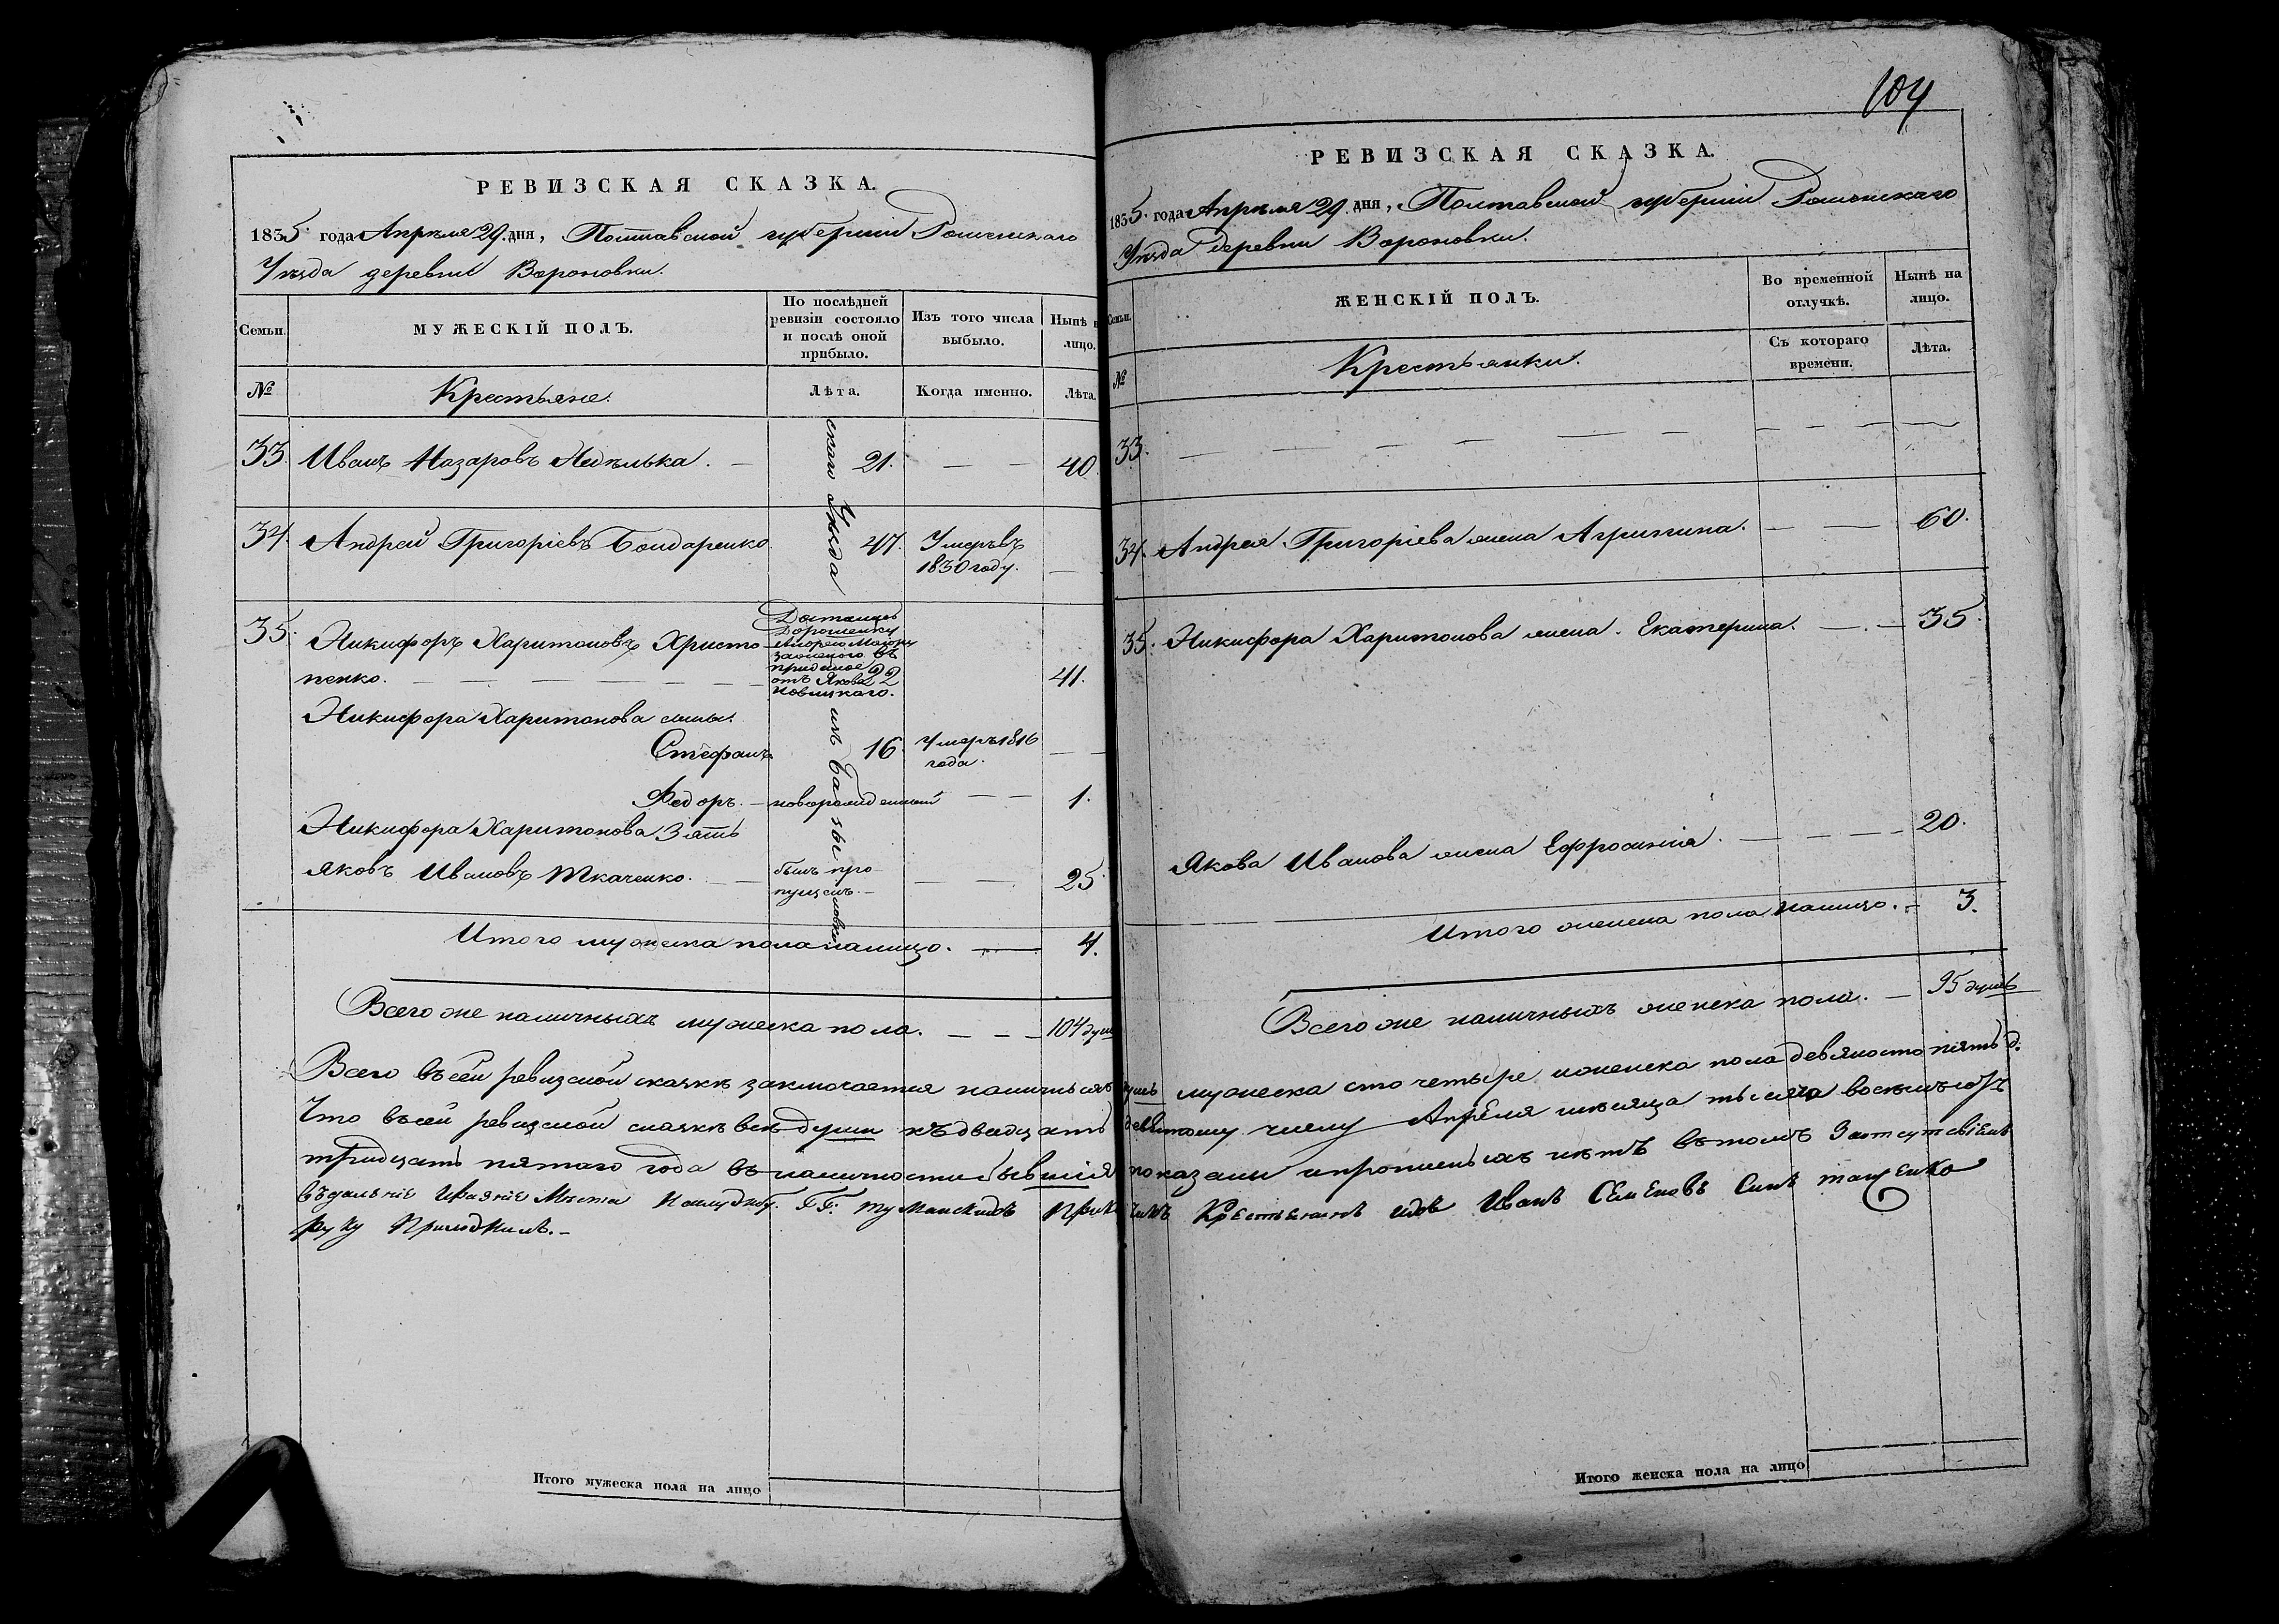 РЕВИЗСКАЯ СКАЗКА.
1835 года Апреля 29. дня, Полтавской губернии Роменскаго
Уезда деревни Вороновки.
Семьи.
МУЖЕСКІЙ ПОЛЪ.
По послѣдней ревизіи состояло и послѣ оной прибыло.
Изъ того числа выбыло.
Нынѣ на лицо.
№
Крестьяне.
Лѣта.
Когда именно.
Лѣта.
33. Иванъ Назаровъ Неделька. — 21. — — 40.
34. Андрей Григоріевъ Бондаренко. 47. Умеръ въ —
1830 году.
35. Никифоръ Харитоновъ Христо
пенко. — — — 22 41.
Дорошенку
приданое
отъ Якова
Новицкаго.
скаго Уезда
Никифора Харитонова сыны.
Стефанъ 16. Умеръ 1816 —
года.
Федоръ. — новорожденный — — 1.
Никифора Харитонова Зять
Яковъ Ивановъ Ткаченко. — былъ про — — 25.
пущенъ. —
Итого мужеска пола налицо. — 4.
Всего же наличныхъ мужеска пола. — — — 104 душ
Итого мужеска пола на лицо
104
РЕВИЗСКАЯ СКАЗКА.
1835. года Апреля 29. дня, Полтавской губерніи Роменскаго
Уезда деревни Вороновки.
Семьи.
ЖЕНСКІЙ ПОЛЪ.
Во временной отлучкѣ.
Нынѣ на лицо.
№
Крестьянки.
Съ котораго времени.
Лѣта.
33. — — — — — —
34. Андрея Григоріева жена Агрипина. — — 60.
35. Никифора Харитонова жена. Екатерина. — — 35.
Якова Иванова жена Ефросинія. — — — 20.
Итого женска пола налицо. — 3.
Всего же наличныхъ женска пола. — 95 душъ
Всего въ сей ревизской сказке заключается наличныхъ душъ мужеска сто четыре и женска пола девяносто пять д.
Что въ сей ревизской сказке все души къ двадцать девятому числу Апреля месяца тысяча восемъ сотъ
тридцать пятаго года въ наличности бывшія показаны и прописныхъ нетъ въ томъ
Крестьянинъ Иванъ Семеновъ Сынъ
руку Приложилъ. —